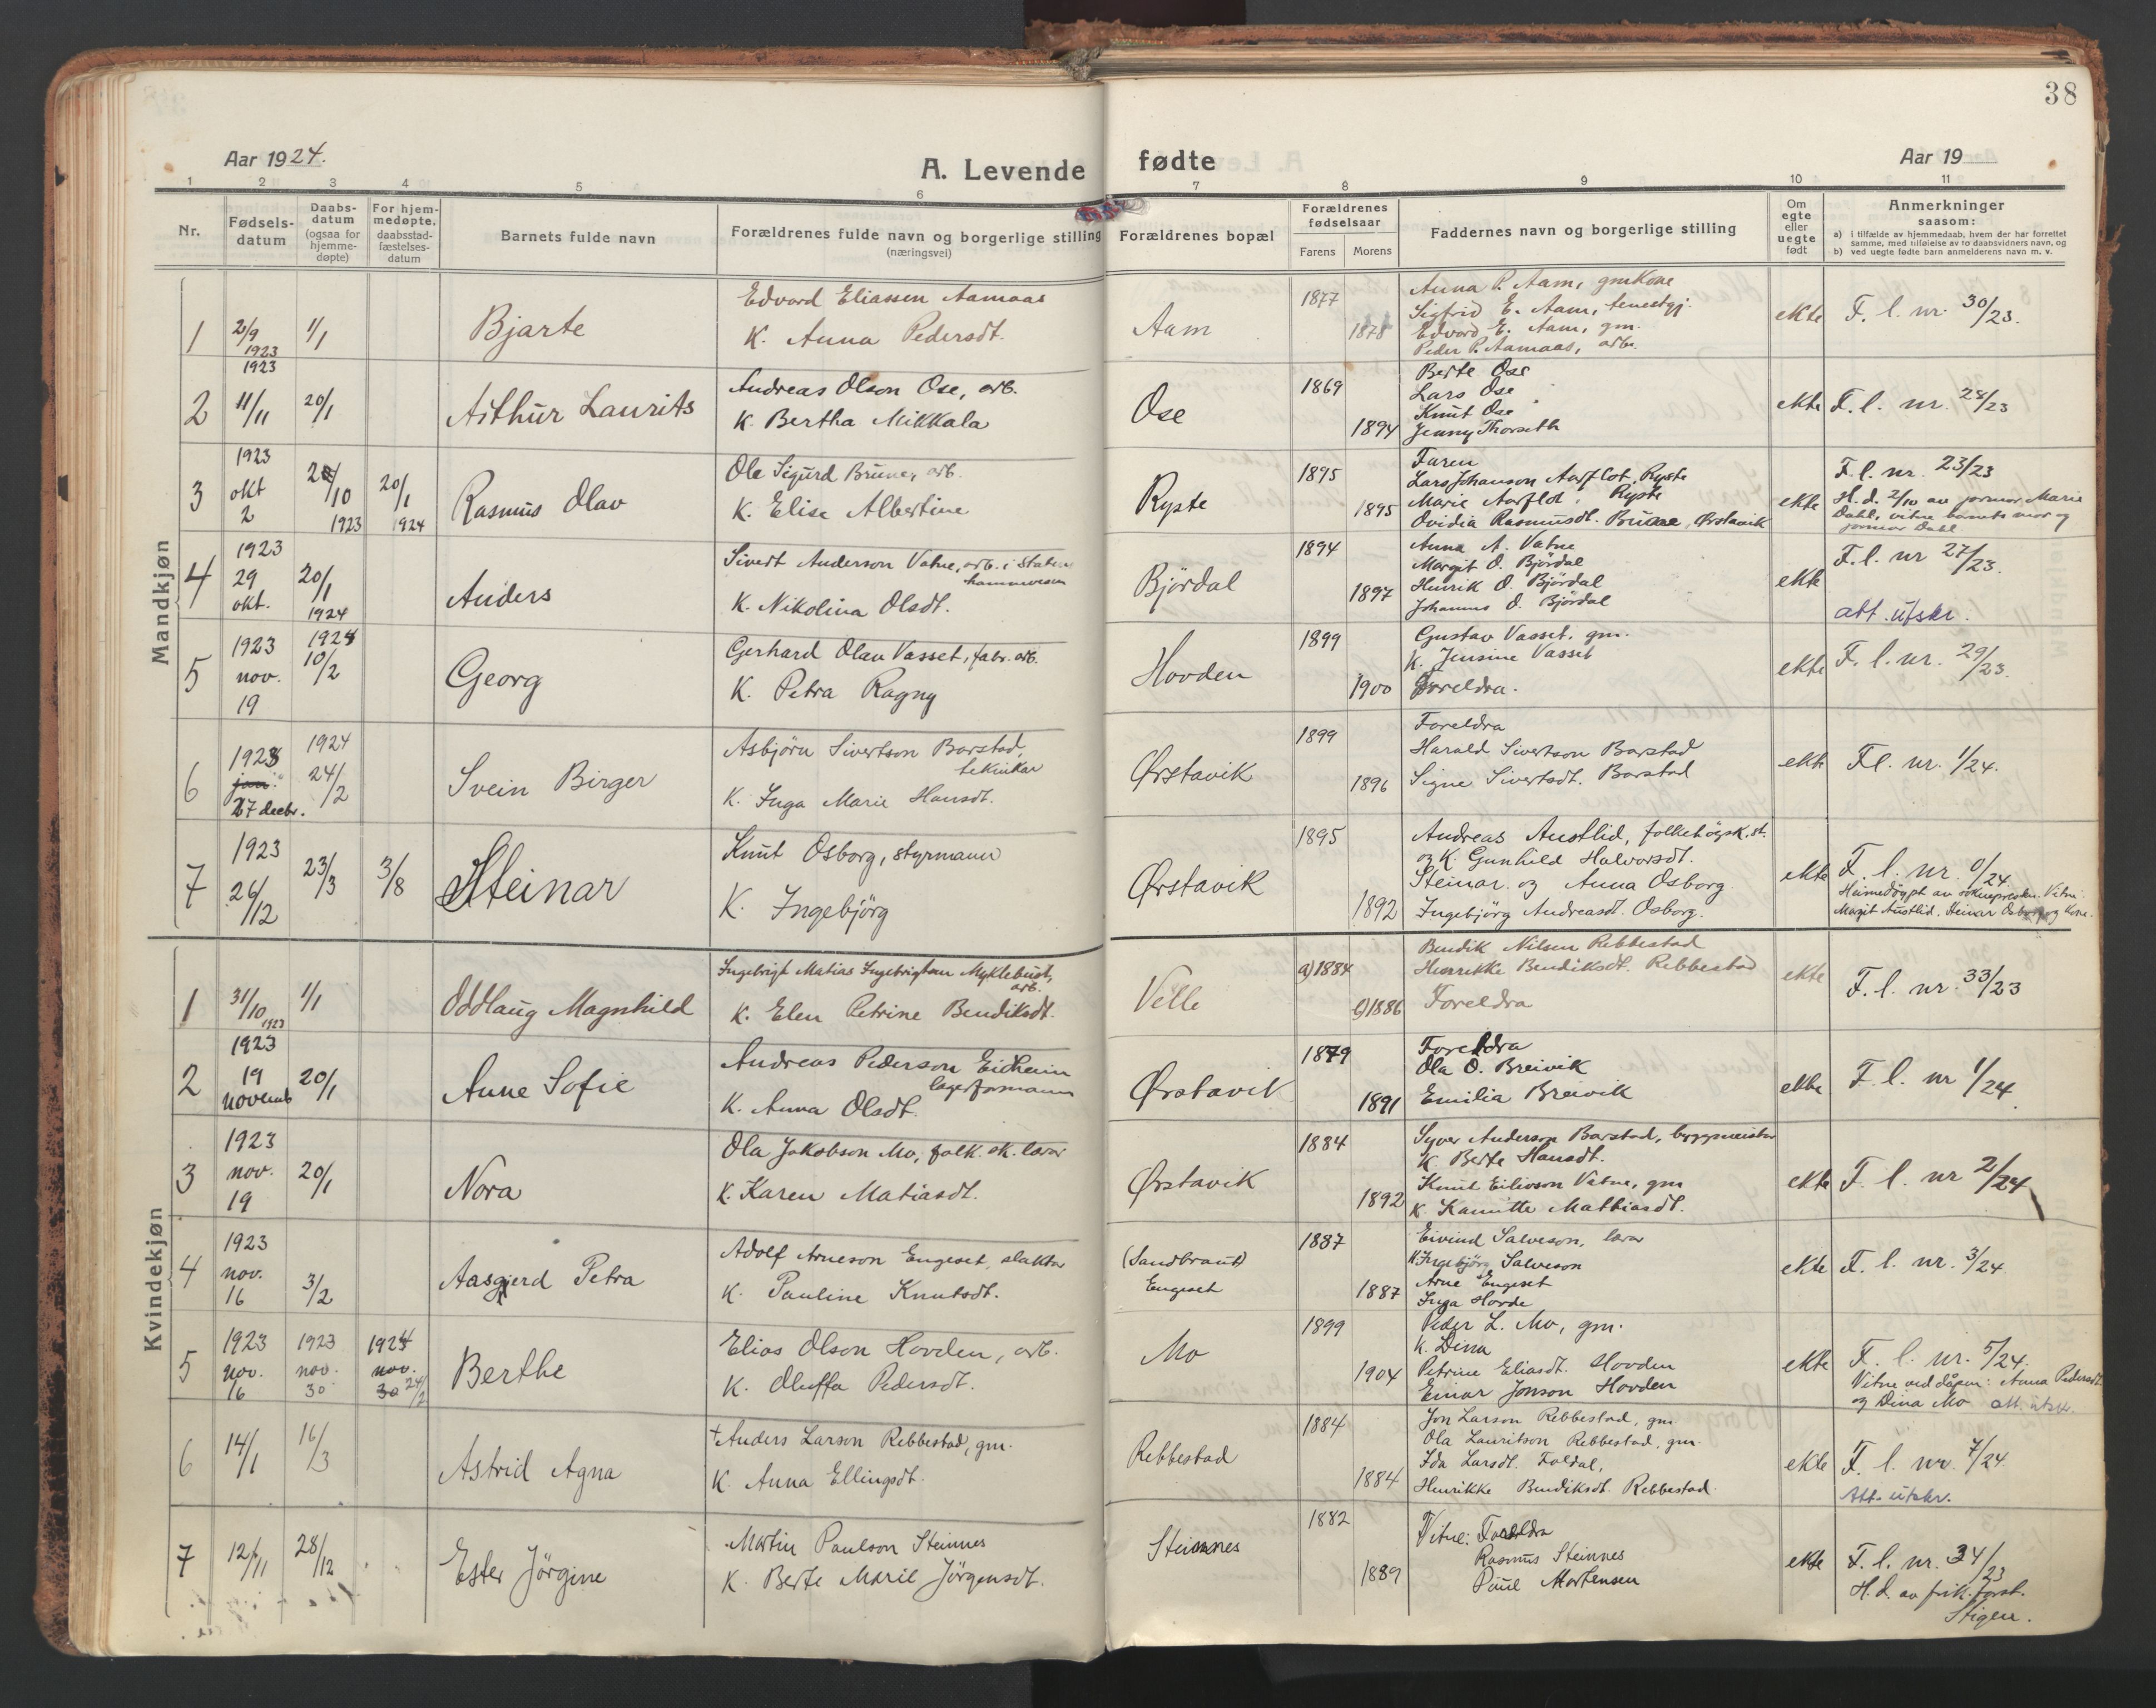 38
Aar 1924.
A. Levende
fødte
Aar 19
1 2 3 4 5 6 7 8 9 10 11
Nr.
Fødsels-
datum
Daabs-
datum
(ogsaa for
hjemme-
døpte)
For hjem-
medøpte,
daabsstad-
fæstelses-
datum
Barnets fulde navn
Forældrenes fulde navn og borgerlige stilling
(næringsvei)
Forældrenes bopæl
Forældrenes
fødselsaar
Farens Morens
Faddernes navn og borgerlige stilling
Om
egte
eller
uegte
født
Anmerkninger
saasom:
a) i tilfælde av hjemmedaab, hvem der har forrettet
samme, med tilføielse av to daabsvidners navn, og
b) ved uegte fødte barn anmelderens navn m. v.
Mandkjøn
1
2/9
1923
1/1
Bjarte
Edvard Eliassen Aamaas
K. Anna Pedersdt.
Aam
1877
1878
Anna P. Aam, gmkone
Sigfrid E. Aam, tenestgj.
Edvard E. Aam, gm.
Peder P. Aamaas, arb.
ekte
F. l. nr. 30/23.
2
1923
11/11
20/1
Arthur Laurits
Andreas Olson Ose, arb.
K. Bertha Mikkala
Ose
1869
1894
Berte Ose
Lars Ose
Knut Ose
Jenny Thorseth
ekte
F. l. nr. 28/23
3
1923
okt
2
/10
1923
20/1
1924
Rasmus Olav
Ole Sigurd Brune, arb.
K. Elise Albertine
Ryste
1895
1895
Faren
Lars Johanson Aarflot, Ryste
Marie Aarflot, Ryste
Ovidia Rasmusdt. Brune, Ørstavik
ekte
F. l. nr. 23/23
H. d. 2/10 av jormor Marie
Dahl, vitne barnets mor og
jormor Dahl
4
1923
29
okt.
20/1
1924
Anders
Sivert Anderson Vatne, arb. i Statens
havnevesen
K. Nikolina Olsdt.
Björdal
1894
1897
Anna A. Vatne
Margit O. Björdal
Henrik O. Björdal
Johannes O. Björdal
ekte
F. l. nr 27/23.
att. utskr.
5
1923
nov.
19
1924
10/2
Georg
Gerhard Olav Vasset, fabr. arb.
K. Petra Ragny
Hovden
1899
1900
Gustav Vasset, gm.
K. Jensine Vasset
Foreldra.
ekte
F. l. nr. 29/23.
6
1923
jan.
27 decbr.
1924
24/2
Svein Birger
Asbjörn Sivertson Barstad,
teknikar
K. Inga Marie Hansdt.
Ørstavik
1899
1896
Foreldra
Harald Sivertson Barstad
Signe Sivertsdt. Barstad
ekte
F. l. nr. 1/24.
7
1923
26/12
23/3
3/8
Steinar
Knut Osborg, styrmann
K. Ingebjörg
Ørstavik
1895
1892
Andreas Austlid, folkehögsk. st.
og K. Gunhild Halvorsdt.
Steinar og Anna Osborg
Ingebjörg Andreasdt. Osborg.
ekte
F. l. nr. 0/24.
Heimedöypt av soknepresten. Vitne:
Margit Austlid. Steinar Osborg og Kone.
Kvindekjøn
1
31/10
1923
1/1
Oddlaug Magnhild
Ingebrigt Matias Ingebrigtsen Myklebust,
arb.
K. Elen Petrine Bendiksdt.
Velle
a) 1884
b) 1886
Bendik Nilsen Rebbestad
Henrikke Bendiksdt. Rebbestad
Foreldra
ekte
F. l. nr. 33/23
2
1923
19
novemb
20/1
Anne Sofie
Andreas Pederson Eidheim
lagerformann
K. Anna Olsdt.
Ørstavik
1879
1891
Foreldra
Ola O. Breivik
Emilia Breivik
ekte
F. l. nr 1/24.
3
1923
nov.
19
20/1
Nora
Ola Jakobson Mo, folk. sk. lærar
K. Karen Matiasdt.
Ørstavik
1884
1892
Syver Anderson Barstad, byggmeistar
K. Berte Hansdt.
Knut Eilivson Vatne, gm
K. Kamitte Mathiasdt.
ekte
F. l. nr 2/24
4
1923
nov.
16
3/2
Aasgjerd Petra
Adolf Arneson Engeset, slaktar
K. Pauline Knutsdt.
(Sandbraut)
Engeset
1887
1887
Eivind Salveson, lærar
K. Ingebjörg Salveson
Arne Engeset
Inga Hovde
ekte
F. l. nr. 3/24
5
1923
nov.
16
1923
nov.
30
1924
nov.
30 24/2
Berthe
Elias Olson Hovden, arb.
K. Oluffa Pedersdt.
Mo
1899
1904
Peder L. Mo, gm.
K. Dina
Petrine Eliasdt. Hovden
Einar Jonson Hovden
ekte
F. l. nr. 5/24.
Vitne ved dåpen: Anna Pedersdt.
og Dina Mo att. utskr.
6
14/1
16/3
Astrid Agna
†Anders Larson Rebbestad, gm.
K. Anna Ellingsdt.
Rebbestad
1884
1884
Jon Larson Rebbestad, gm
Ola Lauritson Rebbestad, gm.
Ida Larsdt. Foldal,
Henrikke Bendiksdt. Rebbestad.
ekte
F. l. nr. 7/24.
Att. utskr.
7
12/11
28/12
Ester Jörgine
Martin Paulson Steinnes
K. Berte Marie Jörgensdt.
Steinnes
1882
1889
Vitne: Foreldra
Rasmus Steinnes
Paul Mortensen
ekte
F. l. nr. 34/23
H. d. av frik. forst.
Stigen.